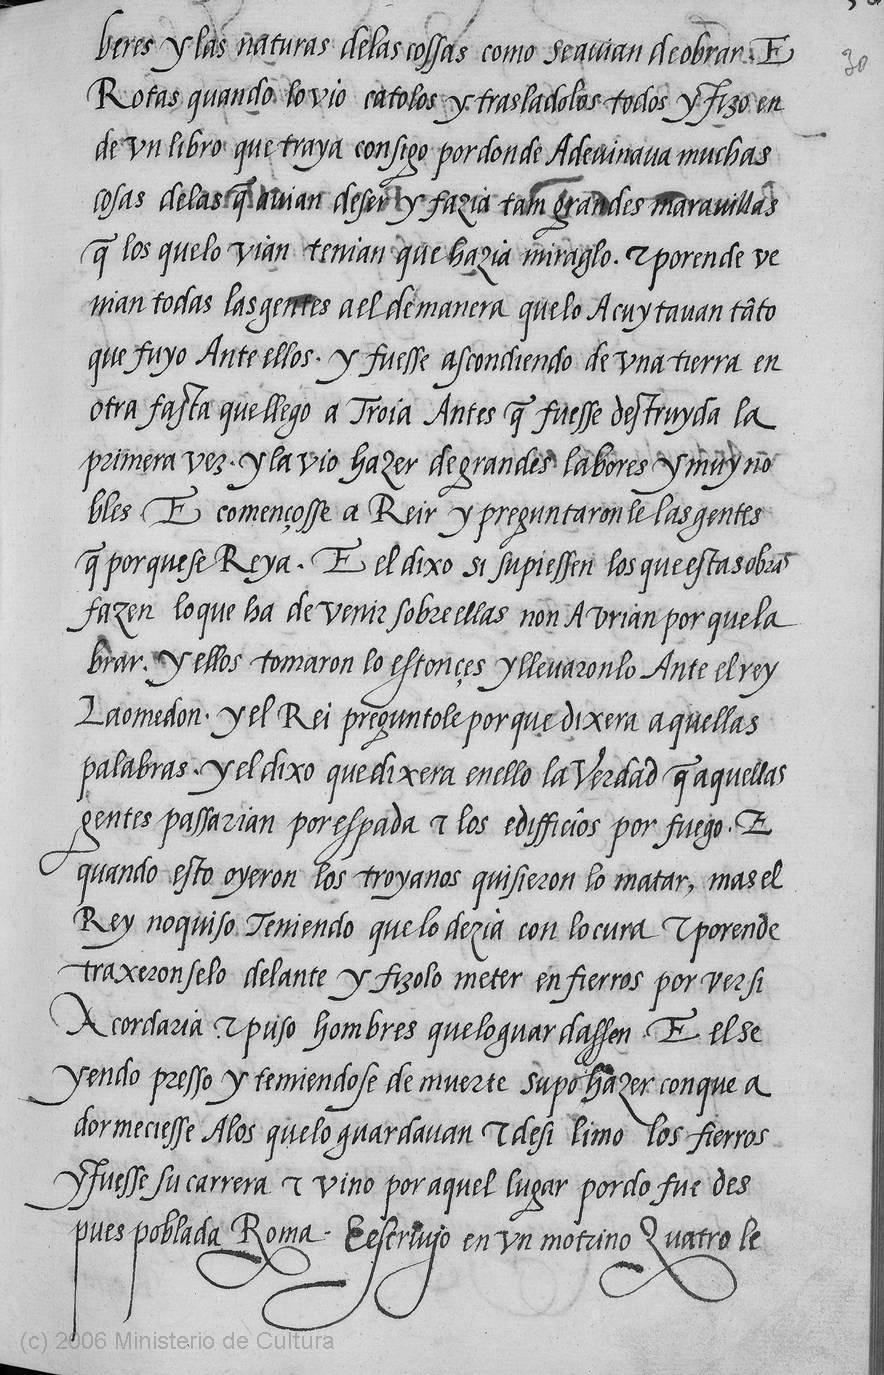 30
beres y las naturas delas cossas como se auian de obrar. E
Rotas quando lo vio catolos y trasladolos todos y fizo en
de vn libro que traya consigo por donde Adeuinaua muchas
cosas delas q̃ auian deser y fazia tam grandes marauillas
q̃ los quelo vian tenian que hazia miraglo. ⁊ porende ve
nian todas las gentes a el de manera quelo Acuytauan tãto
que fuyo Ante ellos. y fuesse ascondiendo de vna tierra en
otra fasta que llego a Troia Antes q̃ fuesse destruyda la
primera vez. y la vio hazer de grandes labores y muy no
bles E començosse a Reir y preguntaronle las gentes
q̃ por que se Reya. E el dixo si supiessen los que estas obras
fazen lo que ha de venir sobre ellas non Aurian por que la
brar. y ellos tomaron lo estonçes y lleuaronlo Ante el rey
Laomedon. y el Rei preguntole por que dixera aquellas
palabras. y el dixo que dixera enello la Verdad q̃ aquellas
gentes passarian por espada ⁊ los edifficios por fuego. E
quando esto oyeron los troyanos quisieron lo matar, mas el
Rey no quiso Teniendo que lo dezia con locura ⁊ porende
traxeronselo delante y fizolo meter en fierros por ver si
Acordaria ⁊ puso hombres quelo guardassen. E el se
yendo presso y temiendose de muerte supo hazer con que a
dormeciesse Alos quelo guardauan ⁊ desi limo los fierros
y fuesse su carrera ⁊ vino por aquel lugar pordo fue des
pues poblada Roma. E escriujo en vn motrino Quatro le
(c) 2006 Ministerio de Cultura